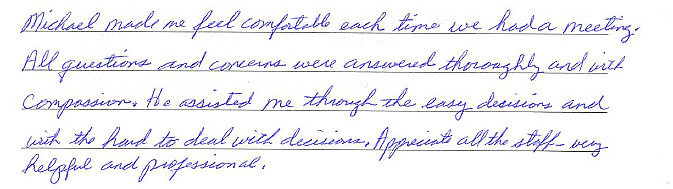 Michael made me feel comfortable each time we had a meeting.
All questions and concerns were answered thoroughly and with
compassion. He assisted me through the easy decisions and
with the hard to deal with decisions. Appreciate all the staff - very
helpful and professional.